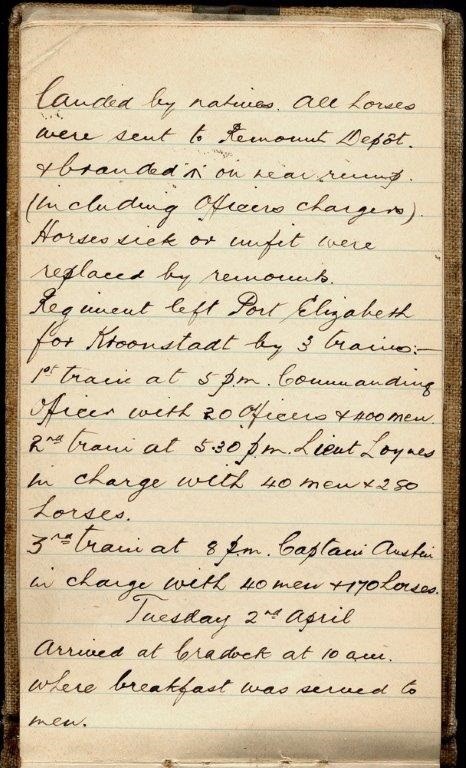 landed by natives. All horses
were sent to Remount Depôt.
& branded ↑ on near rump.
(including Officers chargers).
Horses sick or unfit were
replaced by remounts.
Regiment left Port Elizabeth
for Kroonstadt by 3 trains:—
1st train at 5 p.m. Commanding
Officer with 20 Officers & 400 men.
2nd train at 5.30 p.m. Lieut Loynes
in charge with 40 men & 280
horses.
3rd train at 8 p.m. Captain Austin
in charge with 40 men & 170 horses.
Tuesday 2nd April
Arrived at Cradock at 10 a.m.
where breakfast was served to
men.